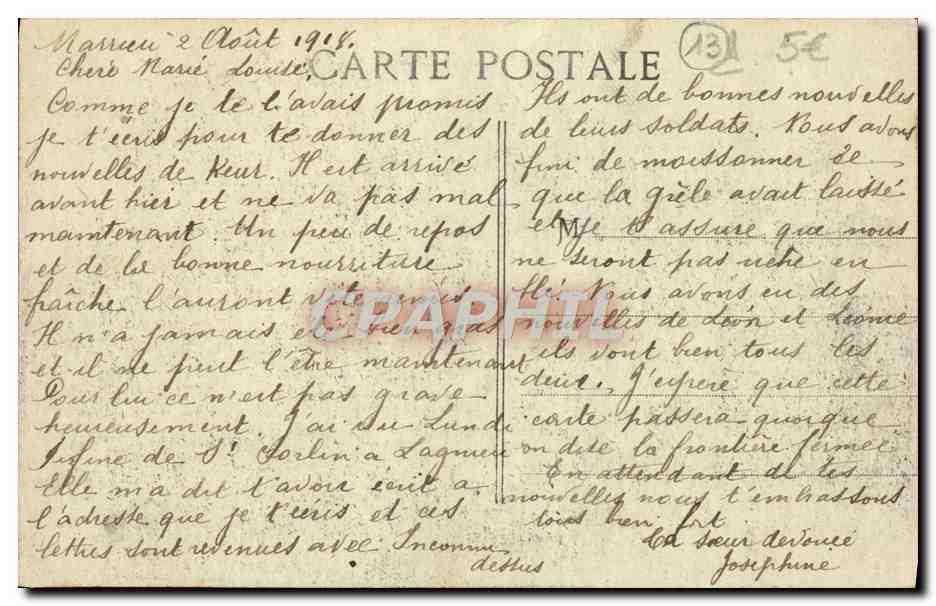 Marrieu 2 Août 1918.
Chère Marie Louise,
CARTE POSTALE
131
5€
Comme je te l'avais promis
je t'écris pour te donner des
nouvelles de Keur. Il est arrivé
avant hier et ne va pas mal
maintenant. Un peu de repos
et de la bonne nourriture
fraîche l'auront vite remis
Il n'a jamais été bien gras
et il ne peut l'être maintenant
Pour lui ce n'est pas grave
heureusement. J'ai vu Lundi
de St Sorlin a Lagnieu
Elle m'a dit t'avoir écrit a
l'adresse que je t'écris et ces
lettres sont revenues avec Inconnu
dessus
Ils ont de bonnes nouvelles
de leurs soldats. Nous avons
fini de moissonner ce
que la grêle avait laissé
et je t'assure que nous
ne seront pas riche en
blé. Nous avons eu des
nouvelles de Léon et Léonie
ils vont bien tous les
deux. J'espère que cette
carte passera quoique
on dise la frontière fermée
En attendant de tes
nouvelles nous t'embrassons
tous bien fort
Ta sœur dévouée
Joséphine
M
CPAPHIL